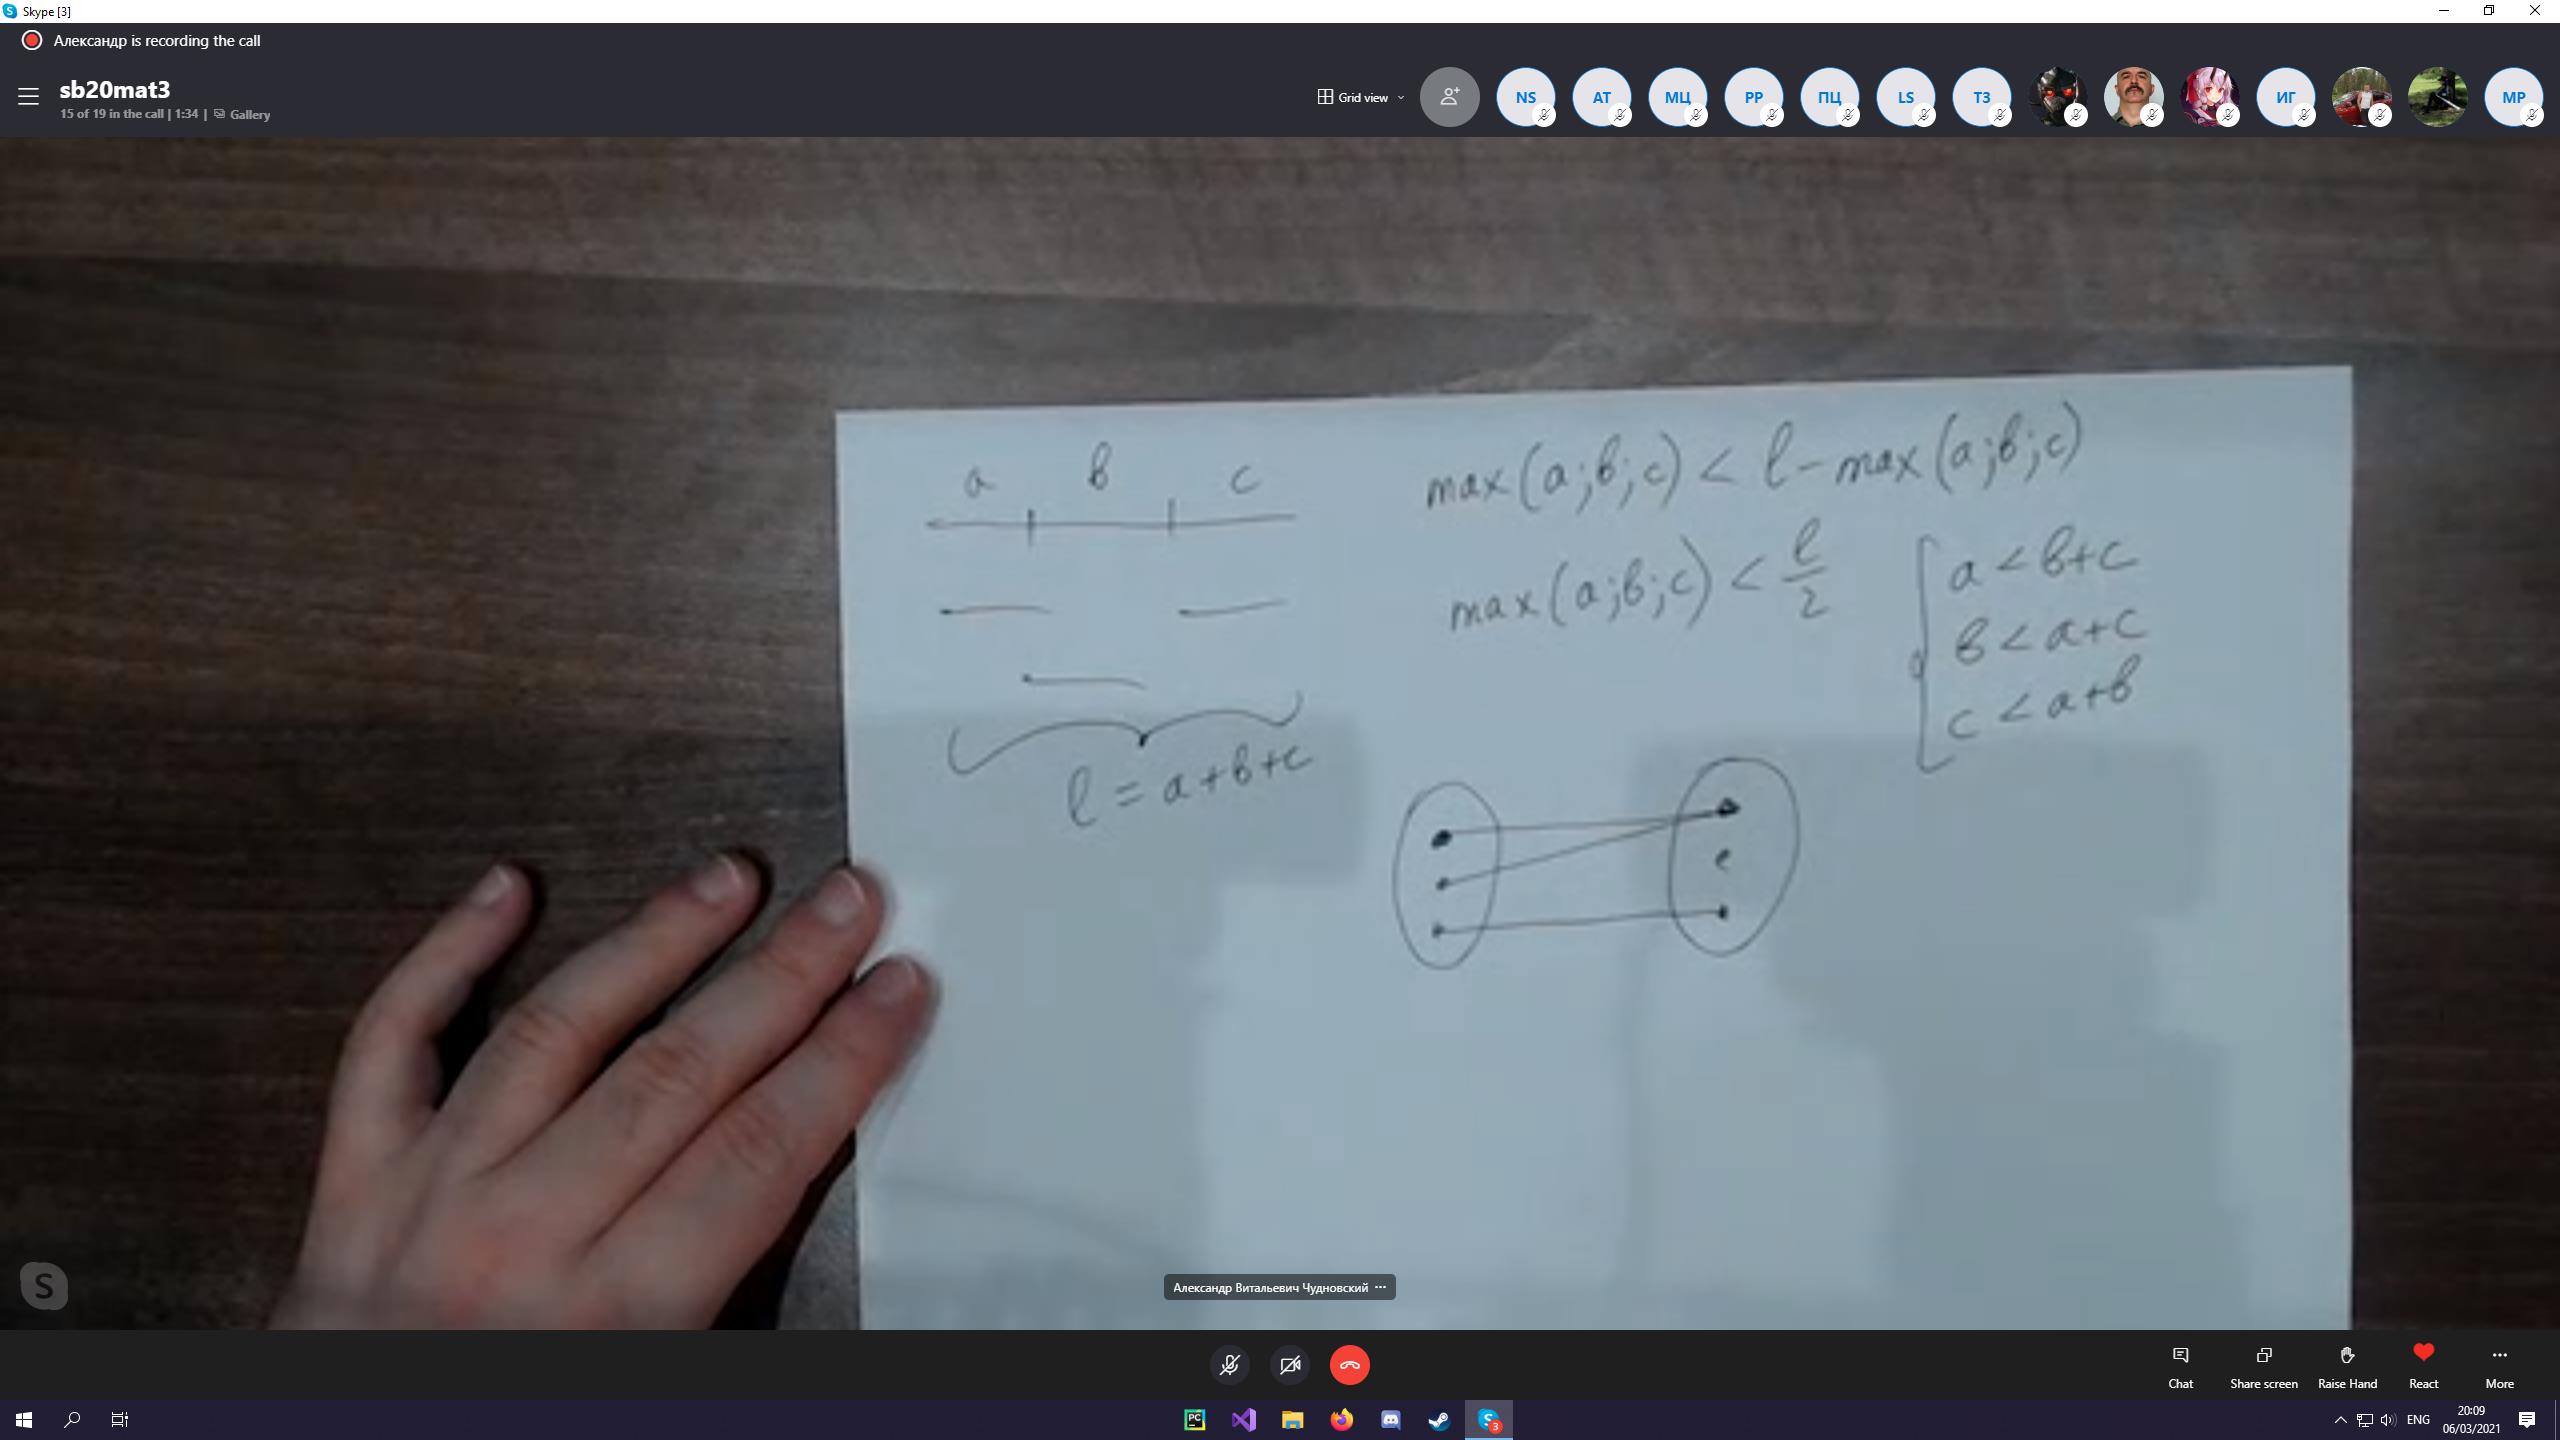 Skype [3]
Александр is recording the call
sb20mat3
15 of 19 in the call | 1:34 | Gallery
Grid view
NS AT МЦ PP ПЦ LS ТЗ ИГ MP
a в c
max(a;в;c) < l - max(a;в;c)
max(a;в;c) < l/2
a < в+c
в < a+c
c < a+в
l = a+в+c
S
Александр Витальевич Чудновский ...
Chat Share screen Raise Hand React More
PC S 3 ENG 20:09
06/03/2021